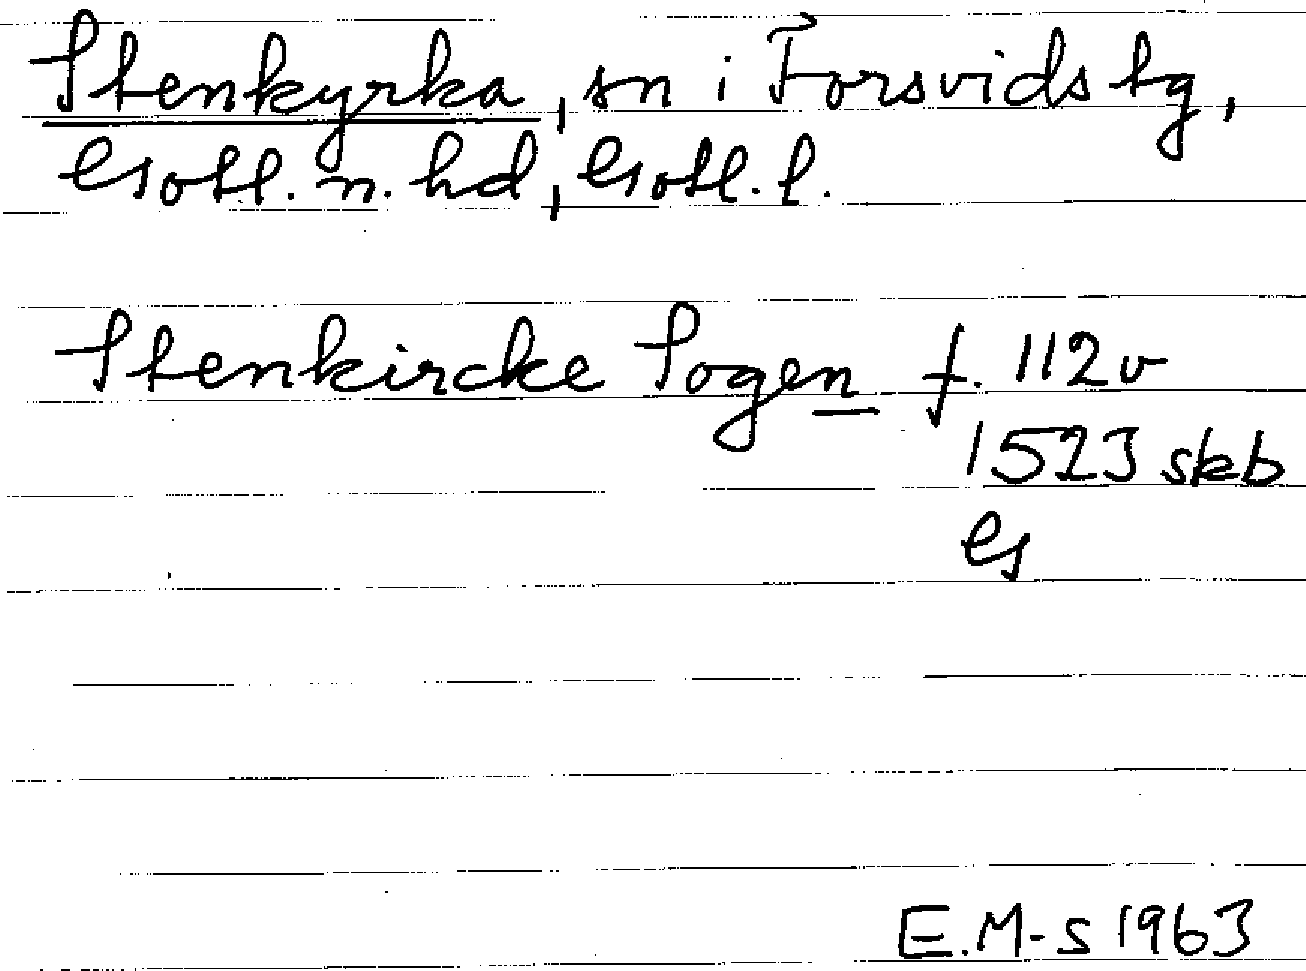 Stenkyrka, sn i Forsvids tg,
Gotl. n. hd, Gotl. l.
Stenkircke Sogen f. 112v
1523 skb
G
E.M-S 1963